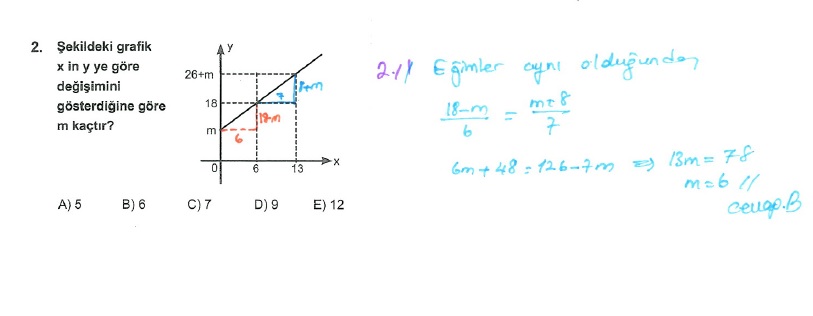 2. Şekildeki grafik
x in y ye göre
değişimini
gösterdiğine göre
m kaçtır?
y
26+m
18
m
0
6
13
x
7
8+m
18-m
6
A) 5 B) 6 C) 7 D) 9 E) 12
2-// Eğimler aynı olduğundan
18-m/6 = m+8/7
6m+48=126-7m ⇒ 13m=78
m=6 //
cevap.B